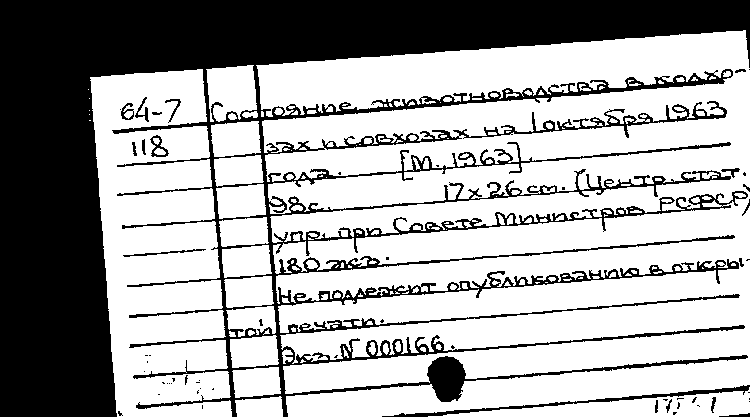 64-7 Состояние животноводства в колхо-
118 зах и совхозах на 1 октября 1963
года. [М., 1963].
98с. 17х26 cm. (Центр. стат.
упр. при Совете Министров РСФСР)
180 экз.
Не подлежит опубликованию в откры-
той печати.
Экз. N 000166.